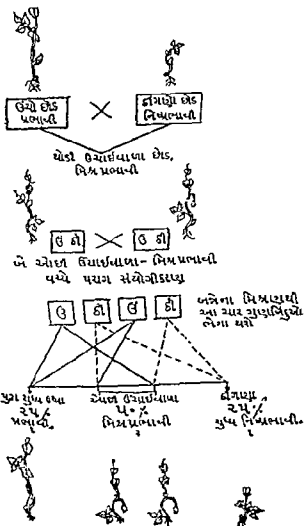 ઉંચો છોડ
પ્રભાવી
ઠીંગણો છોડ
નિષ્પ્રભાવી
થોડી ઉંચાઇવાળા છોડ,
મિશ્રપ્રભાવી
ઉ ઠી
ઉ ઠી
બે ઓછી ઉંચાઇવાળા - મિશ્રપ્રભાવી
વચ્ચે પરાગ સંયોગીકરણ
ઉ ઠી ઉ ઠી
બન્નેના મિશ્રણથી
આ ચાર ગુણબિંદુઓ
ભેગા થશે
ઉંચા
૨૫%
પ્રભાવી.
૧
ઉંચાઇવાળા
૫૦%
મિશ્રપ્રભાવી
૨
ઠીંગણા
૨૫%
શુધ્ધ નિષ્પ્રભાવી.
૧